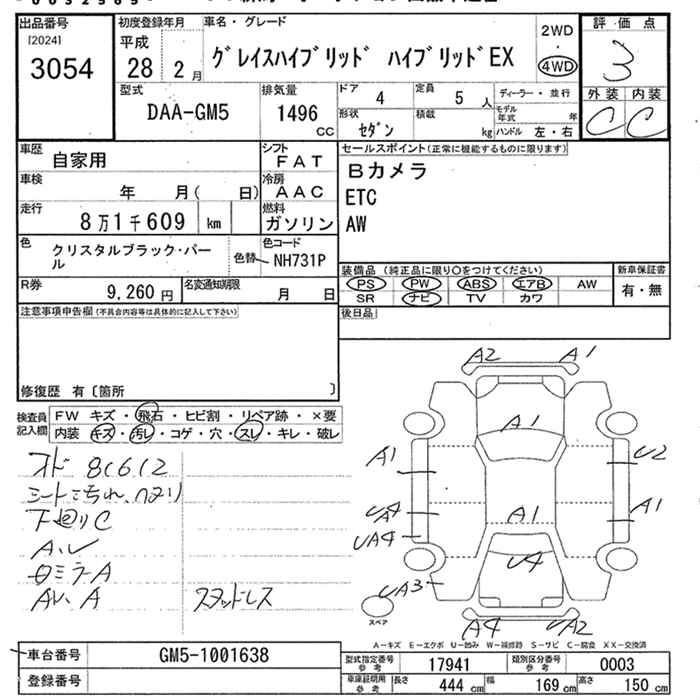 出品番号
[2024]
3054
初度登録年月
平成
28 2 月
車名・グレード
グレイスハイブリッド ハイブリッドEX
2WD
・
4WD
評価点
3
外装 内装
C C
型式
DAA-GM5
排気量
1496
CC
ドア
4
定員
5 人
ディーラー・並行
形状
セダン
積載
kg
モデル年式 年
ハンドル 左・右
車歴
自家用
シフト
FAT
車検
年 月( 日)
冷房
AAC
走行
8万1千609 km
燃料
ガソリン
色
クリスタルブラック・パール
色替
色コード
NH731P
R券
9,260 円
名変通知期限
月 日
セールスポイント(正常に機能するものに限ります)
Bカメラ
ETC
AW
装備品(純正品に限り○をつけてください)
PS PW ABS エアB AW
SR ナビ TV カワ
新車保証書
有・無
後日品
注意事項申告欄(不具合内容等は具体的に記入して下さい)
修復歴 有〔箇所 〕
検査員記入欄
FW キズ・飛石・ヒビ割・リペア跡・×要
内装 キズ・汚レ・コゲ・穴・スレ・キレ・破レ
オド 81612
下廻りC
スタッドレス
A2 A1
A1
A1 U2
UA4 A1 A1
UA4
U4
UA3
スペア
A4 UA2
A-キズ E-エクボ U-凹み W-補修跡 S-サビ C-腐食 XX-交換済
車台番号
GM5-1001638
登録番号
型式指定番号 参考
17941
類別区分番号 参考
0003
車庫証明用 参考
長さ 444 cm
幅 169 cm
高さ 150 cm